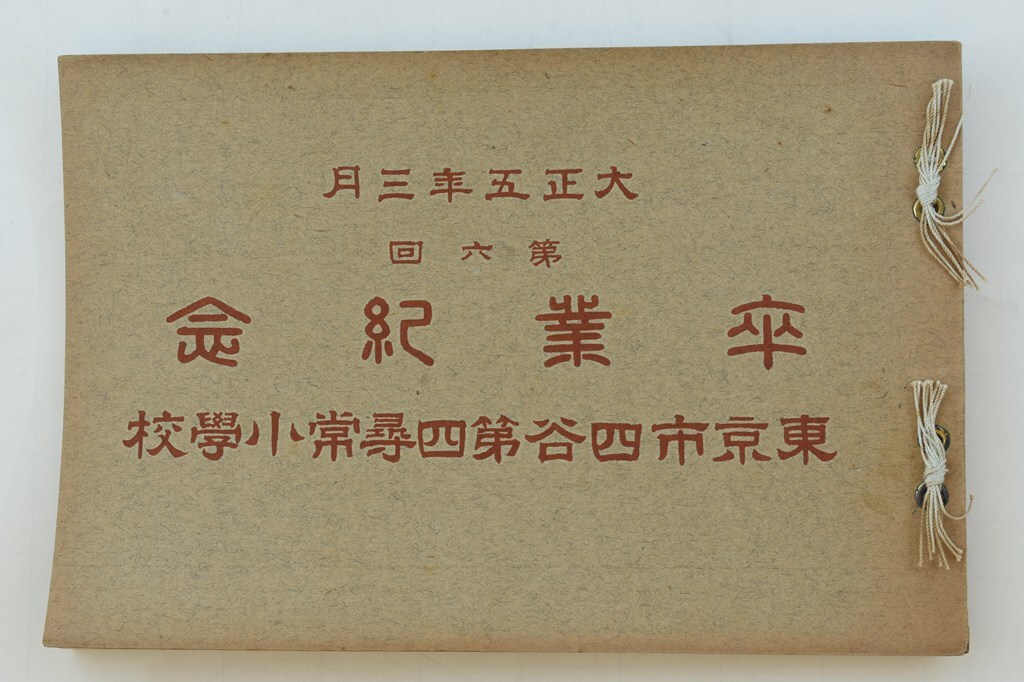 大正五年三月
第六回
卒業紀念
東京市四谷第四尋常小學校